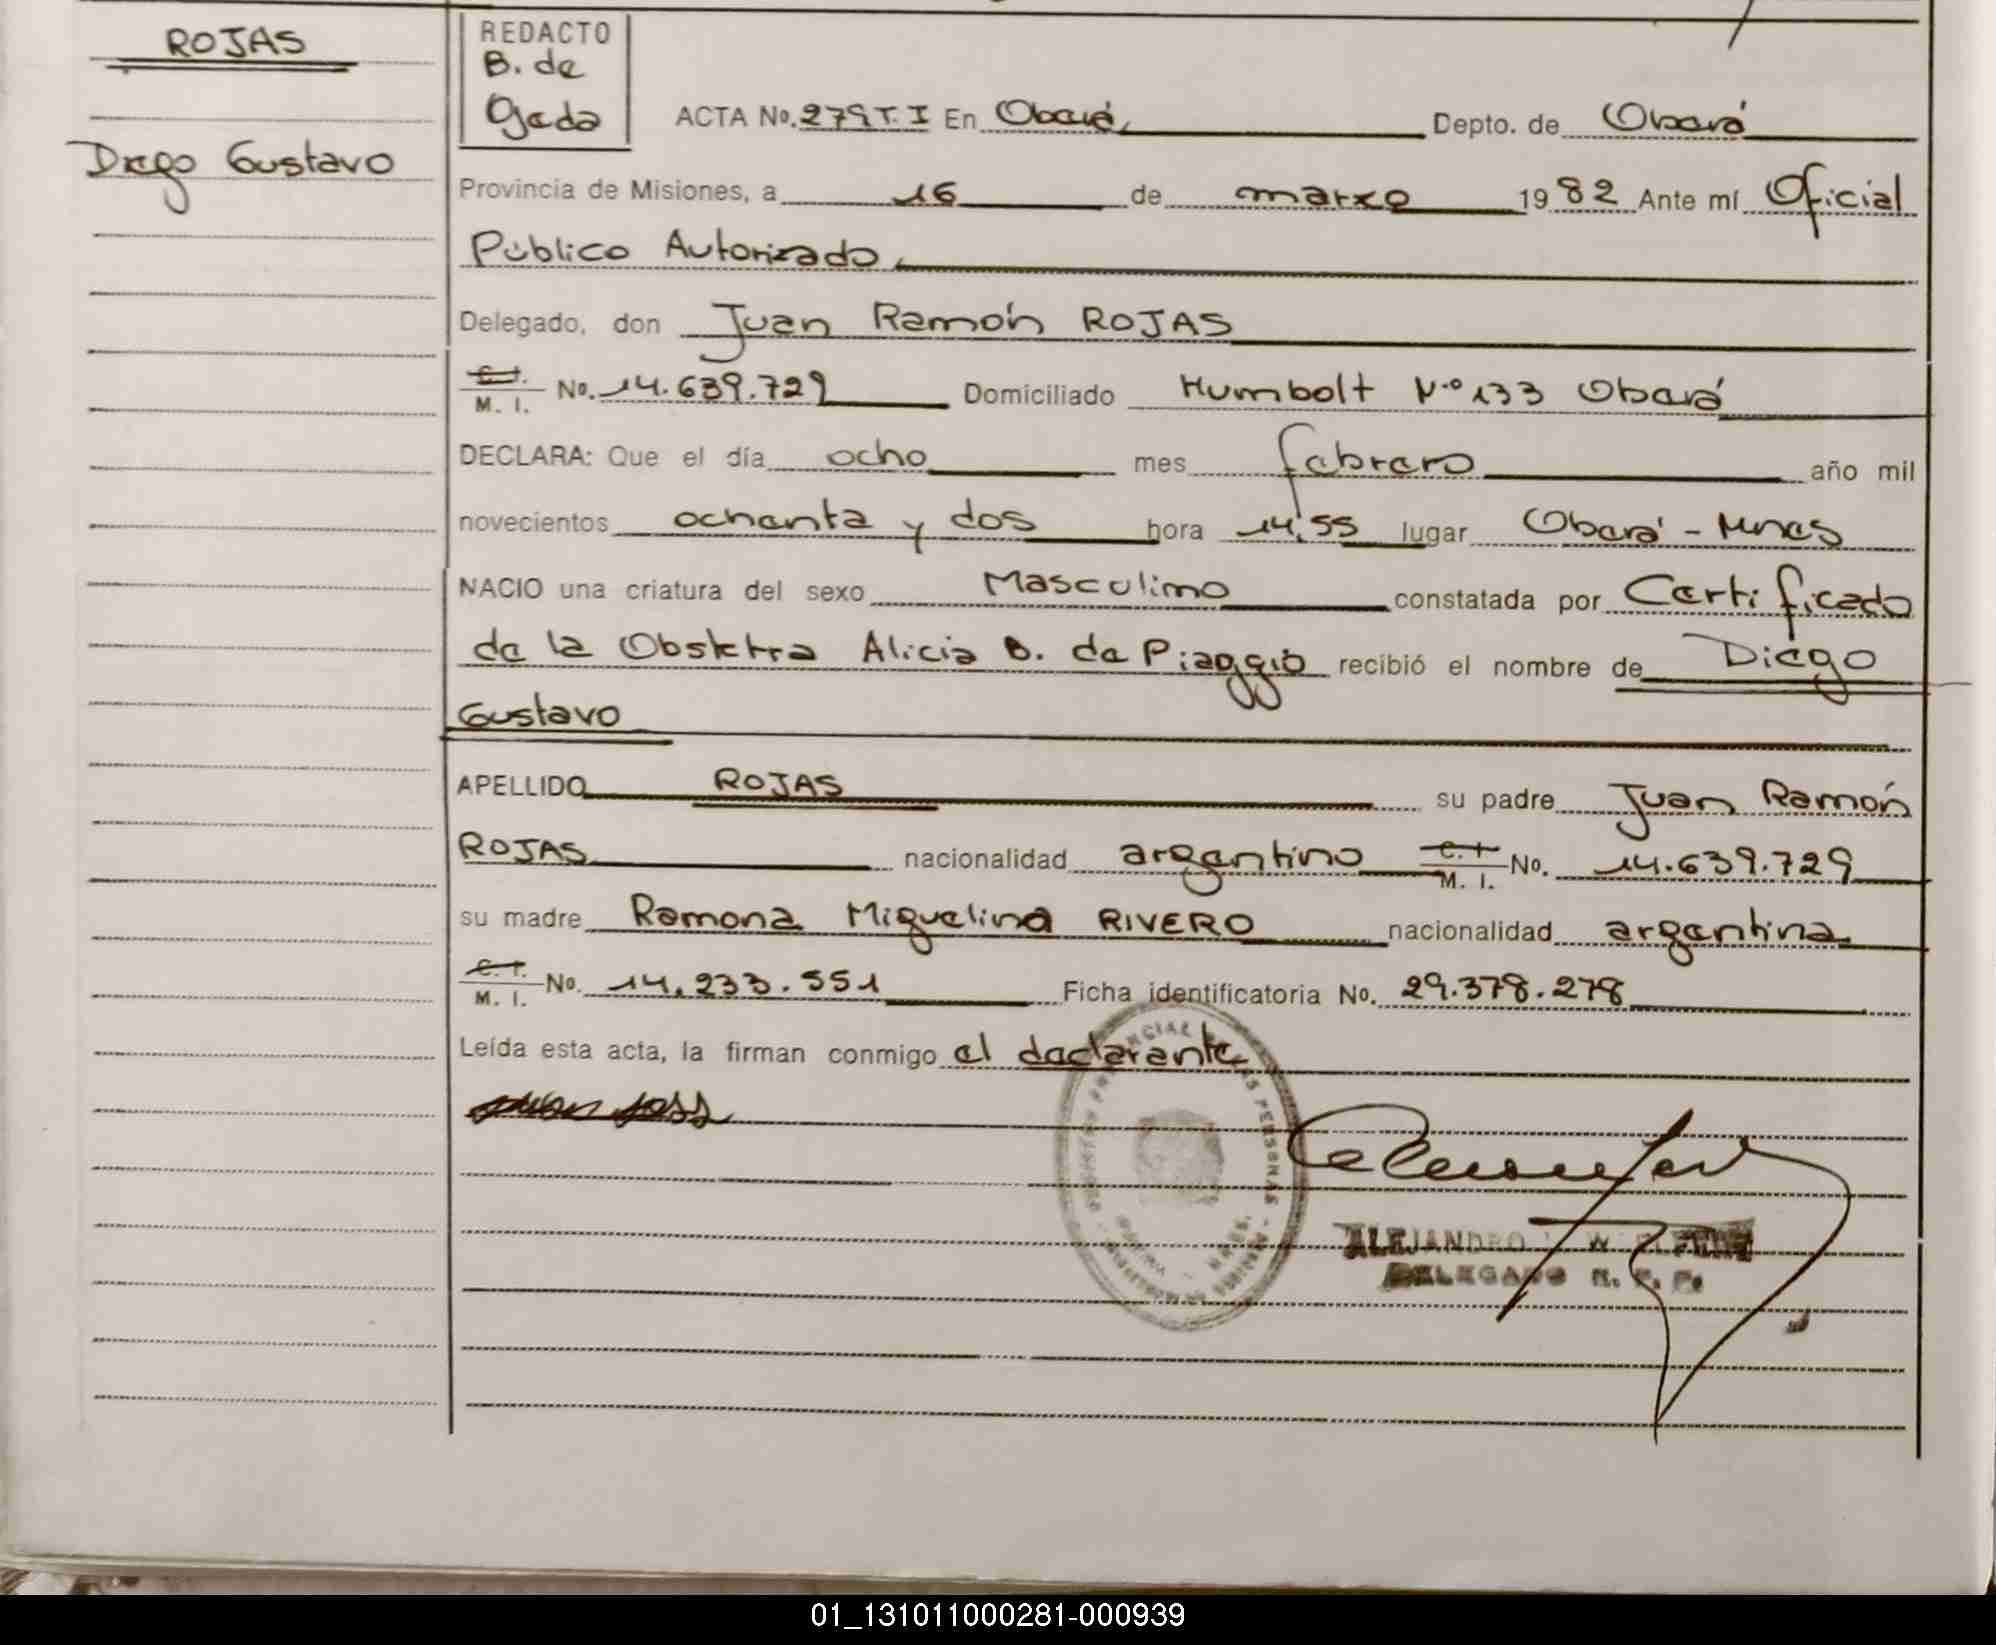 ROJAS
Diego Gustavo
REDACTO
B. de
Ojeda
ACTA No. 279 T. I En Oberá, Depto. de Oberá
Provincia de Misiones, a 16 de marzo 1982 Ante mí Oficial
Público Autorizado,
Delegado, don Juan Ramón ROJAS
C. I. M. I. No. 14.639.729 Domiciliado Humbolt N.º 133 Oberá
DECLARA: Que el día ocho mes febrero año mil
novecientos ochenta y dos hora 14,55 lugar Oberá - Mnes
NACIO una criatura del sexo Masculino constatada por Certificado
de la Obstetra Alicia B. de Piaggio recibió el nombre de Diego
Gustavo
APELLIDO ROJAS su padre Juan Ramón
ROJAS nacionalidad argentino C. I. M. I. No. 14.639.729
su madre Ramona Miguelina RIVERO nacionalidad argentina
C. I. M. I. No. 14.233.551 Ficha identificatoria No. 29.378.278
Leída esta acta, la firman conmigo el declarante
ALEJANDRO W
DELEGADO R. P. P.
01_131011000281-000939